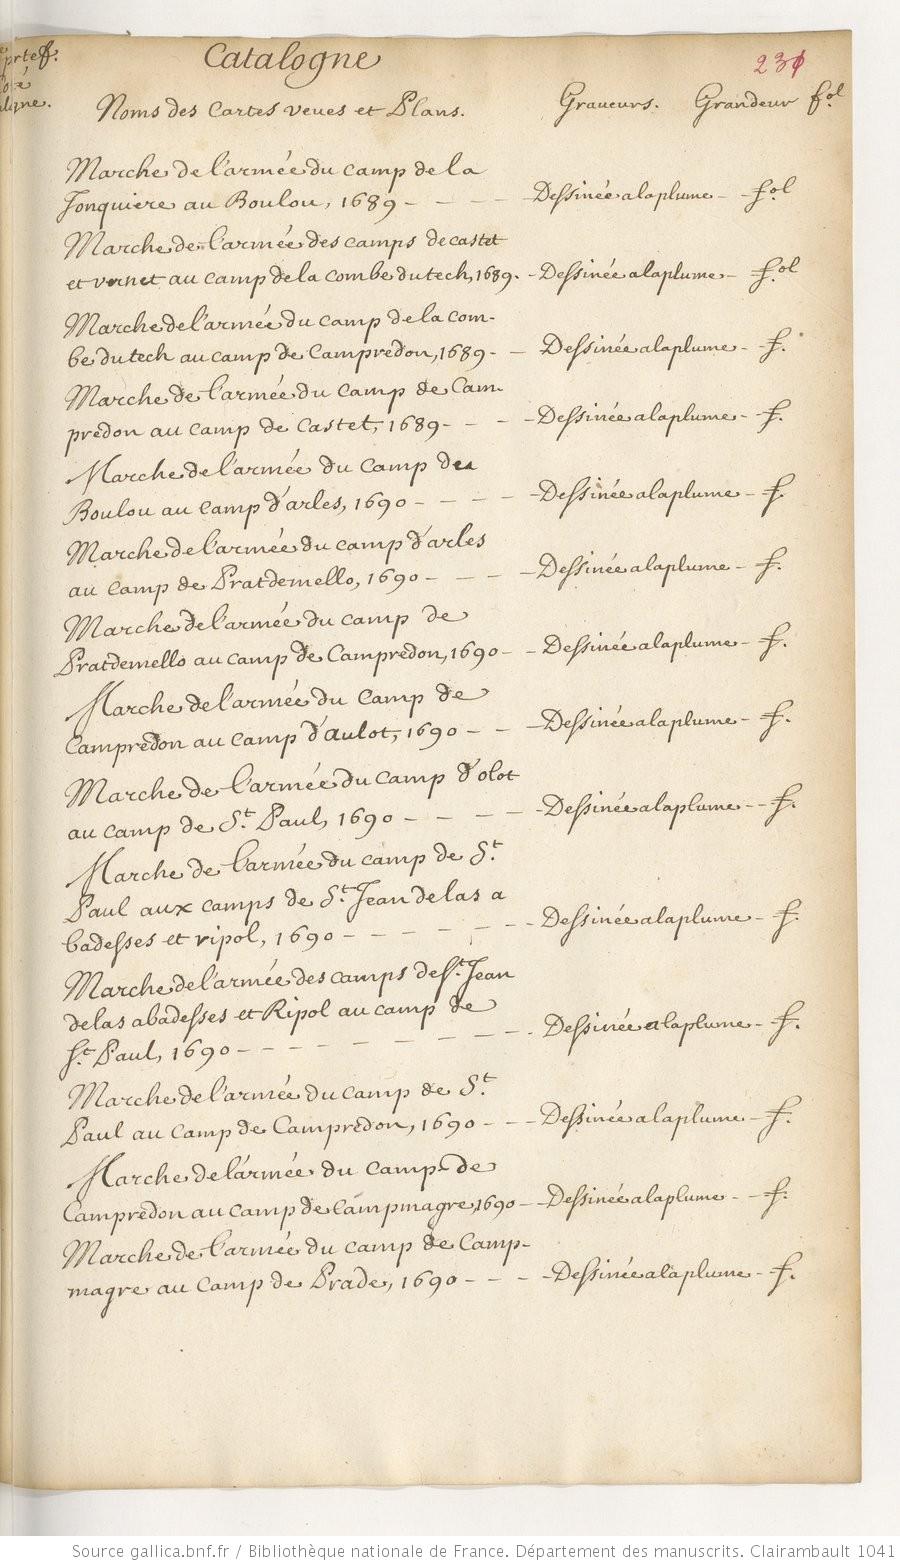 Catalogne
231
portef.
Noms des Cartes veues et Plans. Graveurs. Grandeur fol
Marche de l'armée du camp de la
Jonquiere au Boulou, 1689 - - - - Dessinée a la plume - fol
Marche de l'armée des camps de castet
et vernet au camp de la combe du tech, 1689. - Dessinée a la plume - fol
Marche de l'armée du camp de la com-
be du tech au camp de Campredon, 1689 - - Dessinée a la plume - f.
Marche de l'armée du camp de Cam-
predon au camp de Castet, 1689 - - - Dessinée a la plume - f.
Marche de l'armée du camp de
Boulou au camp d'arles, 1690 - - - - Dessinée a la plume - f.
Marche de l'armée du camp d'arles
au camp de Pratdemello, 1690 - - - - Dessinée a la plume - f.
Marche de l'armée du camp de
Pratdemello au camp de Campredon, 1690 - - Dessinée a la plume - f.
Marche de l'armée du camp de
Campredon au camp d'aulot, 1690 - - - Dessinée a la plume - f.
Marche de l'armée du camp d'olot
au camp de St. Paul, 1690 - - - - - Dessinée a la plume - - f.
Marche de l'armée du camp de St.
Paul aux camps de St. Jean de las a
badesses et ripol, 1690 - - - - - - - Dessinée a la plume - f.
Marche de l'armée des camps de St. Jean
de las abadesses et Ripol au camp de
St. Paul, 1690 - - - - - - - - Dessinée a la plume - f.
Marche de l'armée du camp de St.
Paul au camp de Campredon, 1690 - - - Dessinée a la plume - f.
Marche de l'armée du camp de
Campredon au camp de campmagre, 1690 - - Dessinée a la plume - - f.
Marche de l'armée du camp de Camp-
magre au camp de Prade, 1690 - - - - Dessinée a la plume - f.
Source gallica.bnf.fr / Bibliothèque nationale de France. Département des manuscrits. Clairambault 1041